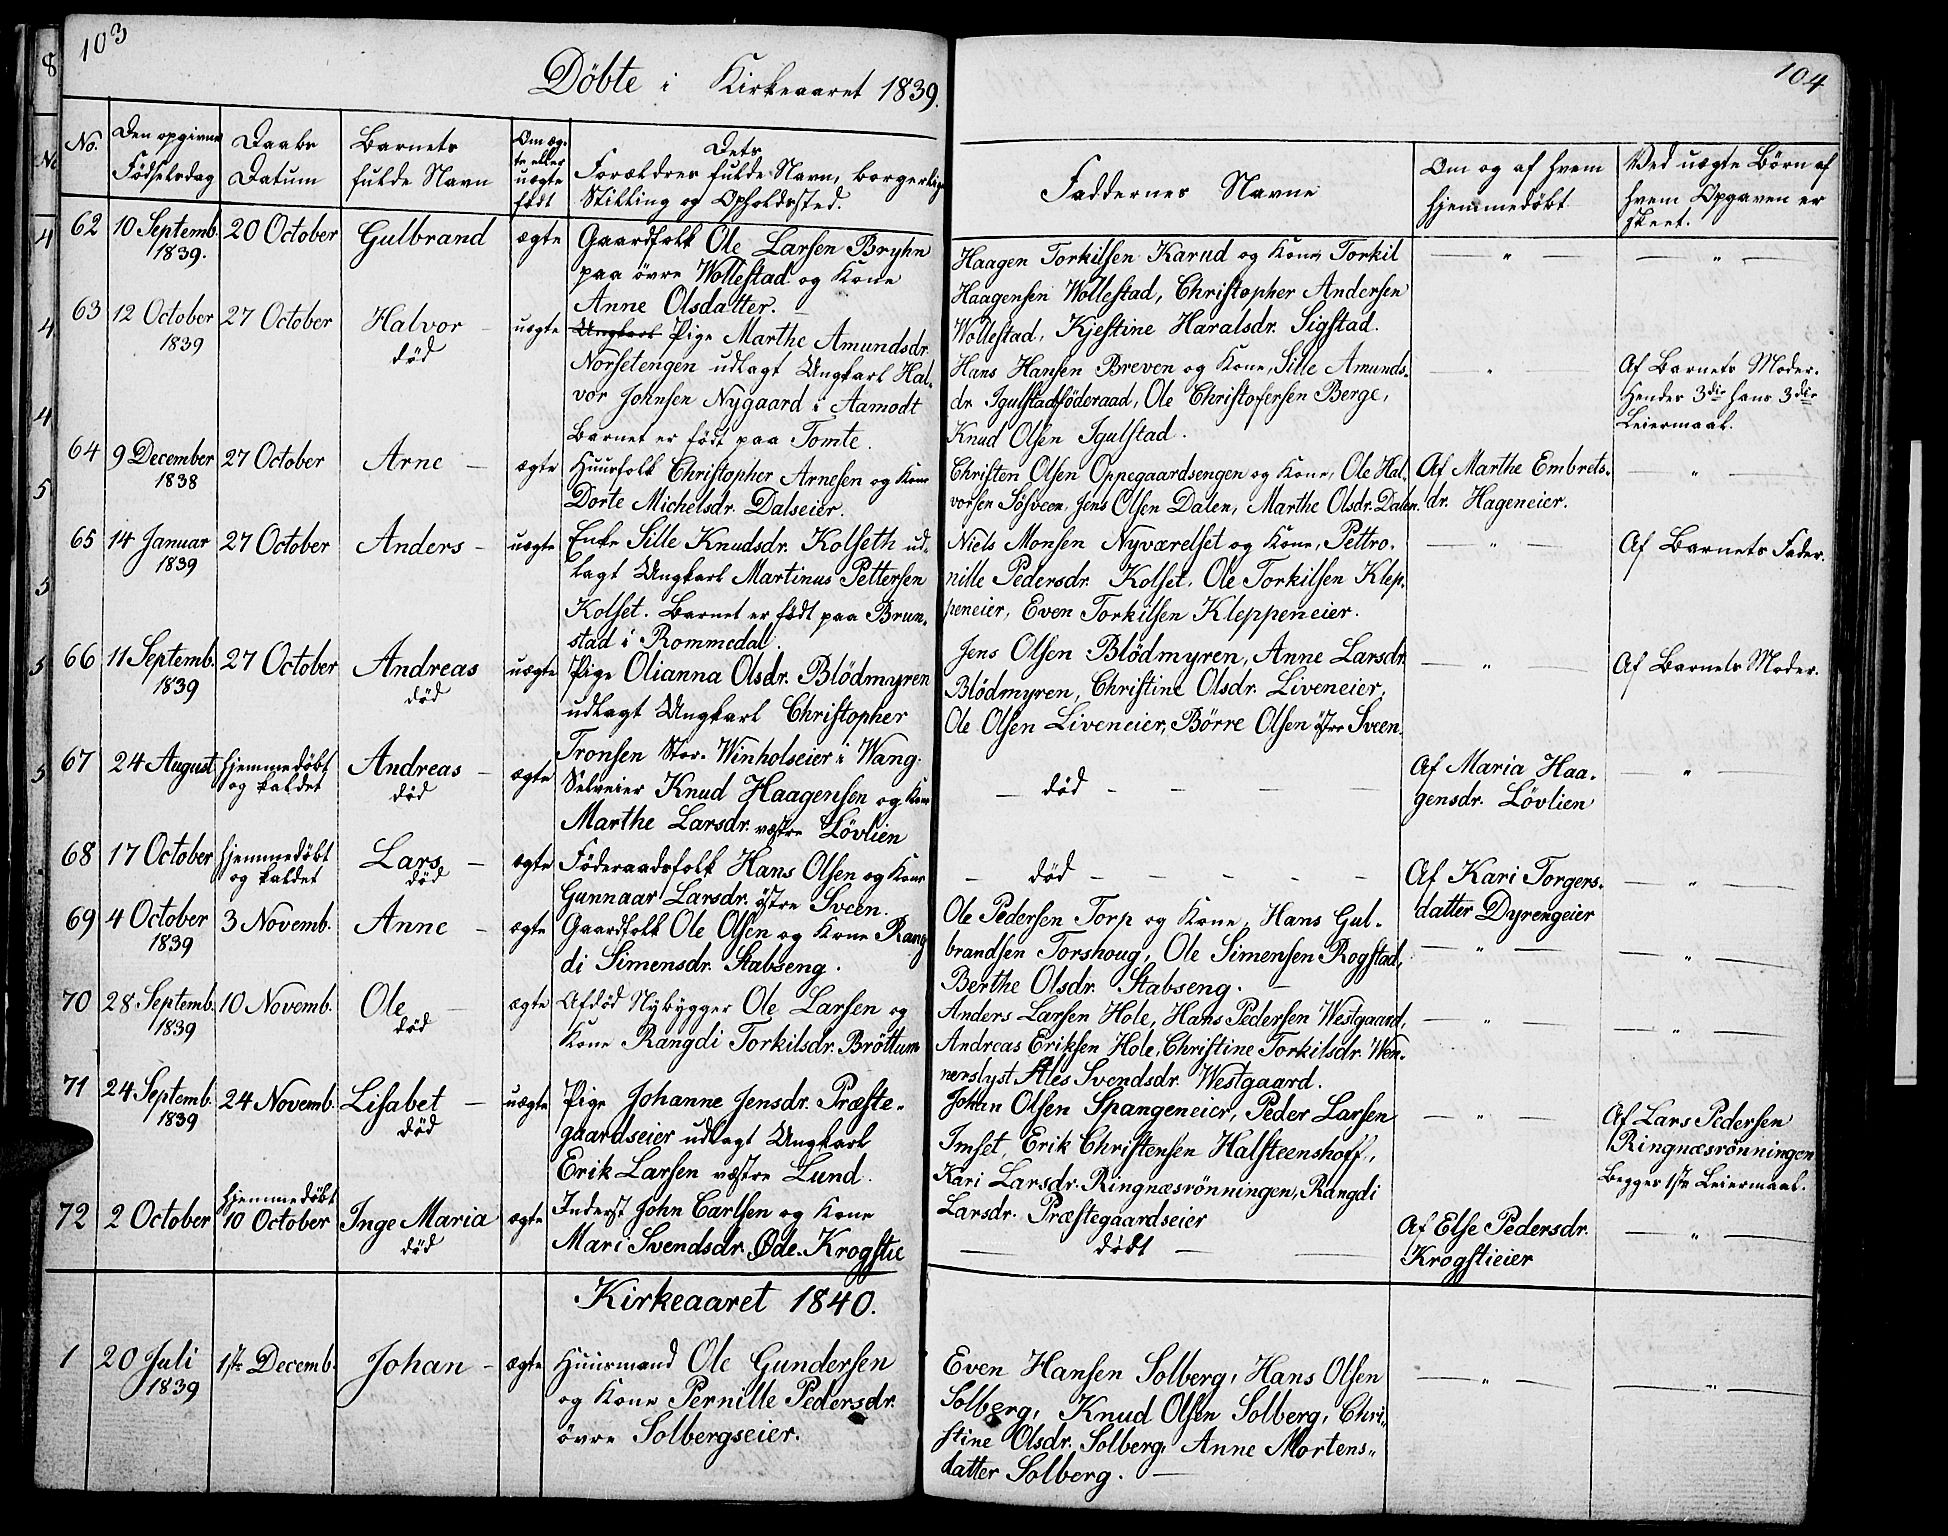 103
Döbte i Kirkeaaret 1839.
No.
Den opgivne Födselsdag
Daabs Datum
Barnets fulde Navn
Om ægte eller uægte födt
Dets Forældres fulde Navn, borgerlige Stilling og Opholdssted.
62 10 Septemb. 1839. 20 October Gulbrand ægte
Gaardfolk Ole Larsen Bryhn
paa övre Wollestad og Kone
Anne Olsdatter. –
63 12 October 1839 27 October Halvor – död uægte
Ungkarl Pige Marthe Amundsdr.
Norsetengen udlagt Ungkarl Hal-
vor Johnsen Nygaard i Aamodt
Barnet er födt paa Tomte.
64 9 December 1838 27 October Arne – ægte
Huusfolk Christopher Arnesen og Kone
Dorte Michelsdr. Dalseier.
65 14 Januar 1839 27 October Anders – uægte
Enke Sille Knudsdr. Kolseth ud-
lagt Ungkarl Martinus Pettersen
Kolset. Barnet er födt paa Brun-
stad i Rommedal.
66 11 Septemb. 1839 27 October Andreas död uægte
Pige Olianna Olsdr. Blödmyren
udlagt Ungkarl Christopher
Tronsen Stor. Winholseier i Wang.
67 24 August hjemmedöbt og kaldet Andreas – död ægte
Selveier Knud Haagensen og Kone
Marthe Larsdr. vestre Lövlien
68 17 October hjemmedöbt og kaldet Lars – död ægte
Föderaadsfolk Hans Olsen og Kone
Gunnaar Larsdr. östre Sveen.
69 4 October 1839 3 Novemb. Anne – ægte
Gaardfolk Ole Olsen og Kone Rang
di Simensdr. Stabseng.
70 28 Septemb. 1839 10 Novemb. Ole – död ægte
Afdöd Nybygger Ole Larsen og
Kone Rangdi Torkilsdr. Bröttum
71 24 Septemb. 1839 24 Novemb. Lisabet – död uægte
Pige Johanne Jensdr. Præste-
gaardseier udlagt Ungkarl
Erik Larsen vestre Lund.
72 2 October hjemmedöbt 10 October Inge Maria död ægte
Inderst John Carlsen og Kone
Mari Svendsdr. Öde. Krogstie
Kirkeaaret 1840.
1 20 Juli 1839 1ste Decemb. Johan – ægte
Huusmand Ole Gundersen
og Kone Pernille Pedersdr.
övre Solbergseier.
104
Faddernes Navne
Om og af hvem hjemmedöbt
Ved uægte Börn af hvem Opgaven er skeet.
Haagen Torkilsen Karud og Kone, Torkil
Haagensen Wollestad, Christopher Andersen
Wollestad, Kjestine Haralsdr. Sigstad.
— " — — " —
Hans Hansen Breven og Kone, Sille Amunds-
dr. Igulstadföderaad, Ole Christofersen Berge,
Knud Olsen Igulstad.
— " —
Af Barnets Moder.
Hendes 3die hans 3die
Leiermaal.
Christen Olsen Oppegaardsengen og Kone, Ole Hal-
vorsen Sösveen, Jens Olsen Dalen, Marthe Olsdr. Dalen.
Af Marthe Embrets-
dr. Hageneier.
— " —
Niels Monsen Nyværelset og Kone, Pettro-
nille Pedersdr. Kolset, Ole Torkilsen Klep-
peneier, Even Torkilsen Kleppeneier.
— " —
Af Barnets Fader.
Jens Olsen Blödmyren, Anne Larsdr.
Blödmyren, Christine Olsdr. Liveneier,
Ole Olsen Liveneier, Börre Olsen östre Sveen.
— " —
Af Barnets Moder.
— död – – – –
Af Maria Haa-
gensdr. Lövlien
— " —
– död – – – – –
Af Kari Torgers-
datter Dyrengeier
— " —
Ole Pedersen Torp og Kone, Hans Gul-
brandsen Torshoug, Ole Simensen Rogstad,
Berthe Olsdr. Stabseng. –
— " — — " —
Anders Larsen Hole, Hans Pedersen Westgaard,
Andreas Eriksen Hole, Christine Torkilsdr. Wen-
nerslyst Ales Svendsdr. Westgaard.
— " — — " —
Johan Olsen Spangeneier, Peder Larsen
Imset, Erik Christensen Halsteenshoff,
Kari Larsdr. Ringnæsrönningen, Rangdi
Larsdr. Præstegaardseier
— " —
Af Lars Pedersen
Ringnæsrönningen
Begges 1ste Leiermaal.
— dödt — —
Af Else Pedersdr.
Krogstieier
— " —
Even Hansen Solberg, Hans Olsen
Solberg, Knud Olsen Solberg, Chri-
stine Olsdr. Solberg, Anne Mortens-
datter Solberg. —
— " — — " —